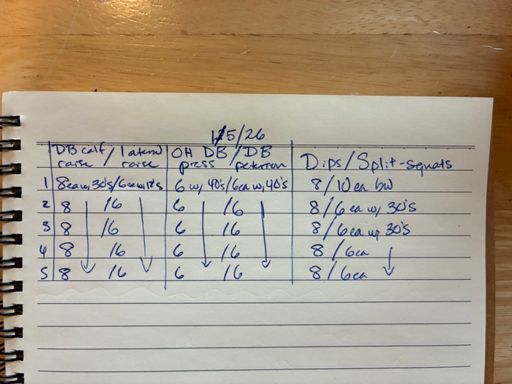 1/5/26
DB calf / lateral OH DB / DB Dips / Split-squats
raise raise press peterson
1 8ea w/ 30's / 6ea w/ 12's 6 w/ 40's / 6ea w/ 40's 8 / 10 ea bw
2 8 / 6 6 / 6 8 / 6 ea w/ 30's
3 8 / 6 6 / 6 8 / 6 ea w/ 30's
4 8 / 6 6 / 6 8 / 6ea
5 8 / 6 6 / 6 8 / 6ea